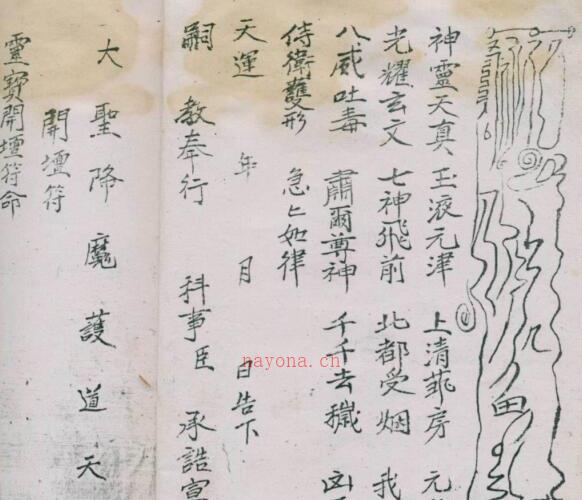 神靈天真 玉液元津 上清華房 元
光耀玄文 七神飛前 北都受烟 我
八威吐毒 肅爾尊神 千千去穢 凶
侍衛護形 急〻如律
天運 年 月 日告下
嗣教奉行 科事臣 承誥宣
大聖降魔護道天
開壇符
靈寶開壇符命
nayona.cn